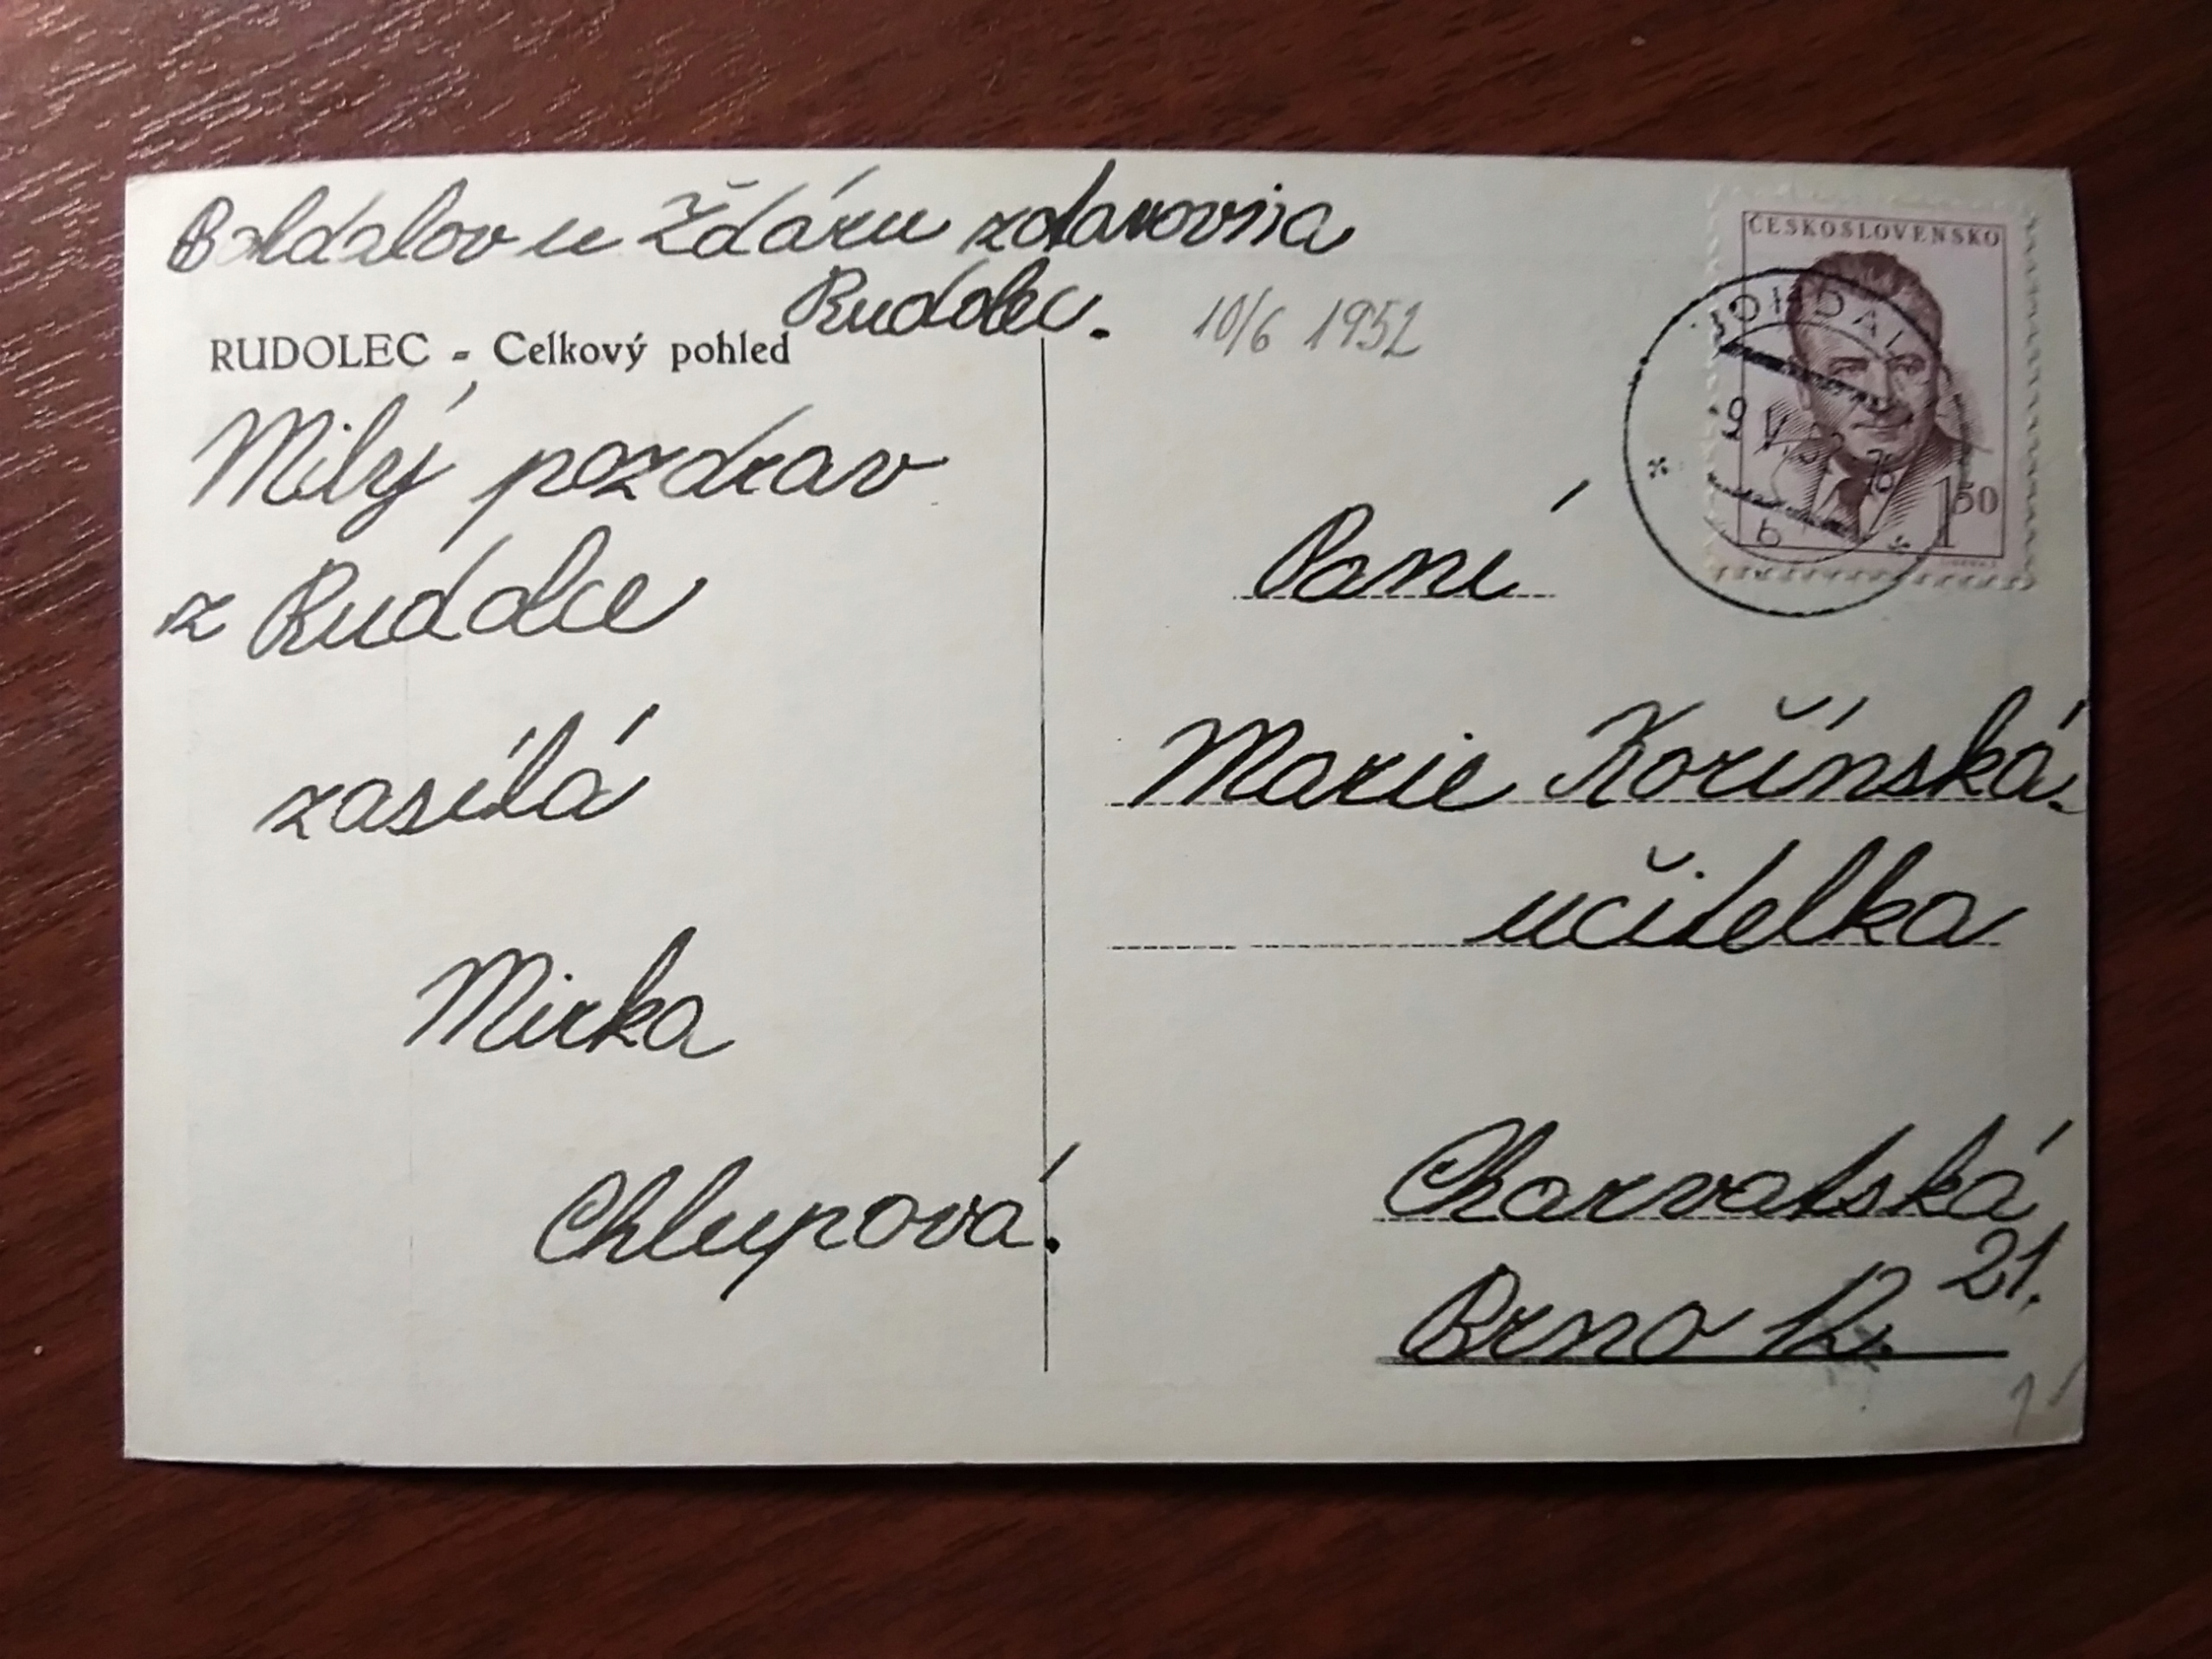 Bohdalov u Žďáru zdarovnia
Rudolec.
10/6 1952
RUDOLEC - Celkový pohled
Milý pozdrav
z Rudolce
zasílá
Mirka
Chlupová.
ČESKOSLOVENSKO
1 50
b
Paní
Marie Kořínská.
učitelka
Charvatská
21.
Brno 12.